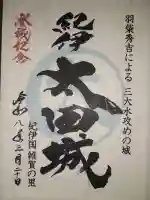 羽柴秀吉による 三大水攻めの城
紀伊
太田城
登城記念
令和八年三月二十日
紀伊国 雑賀の里